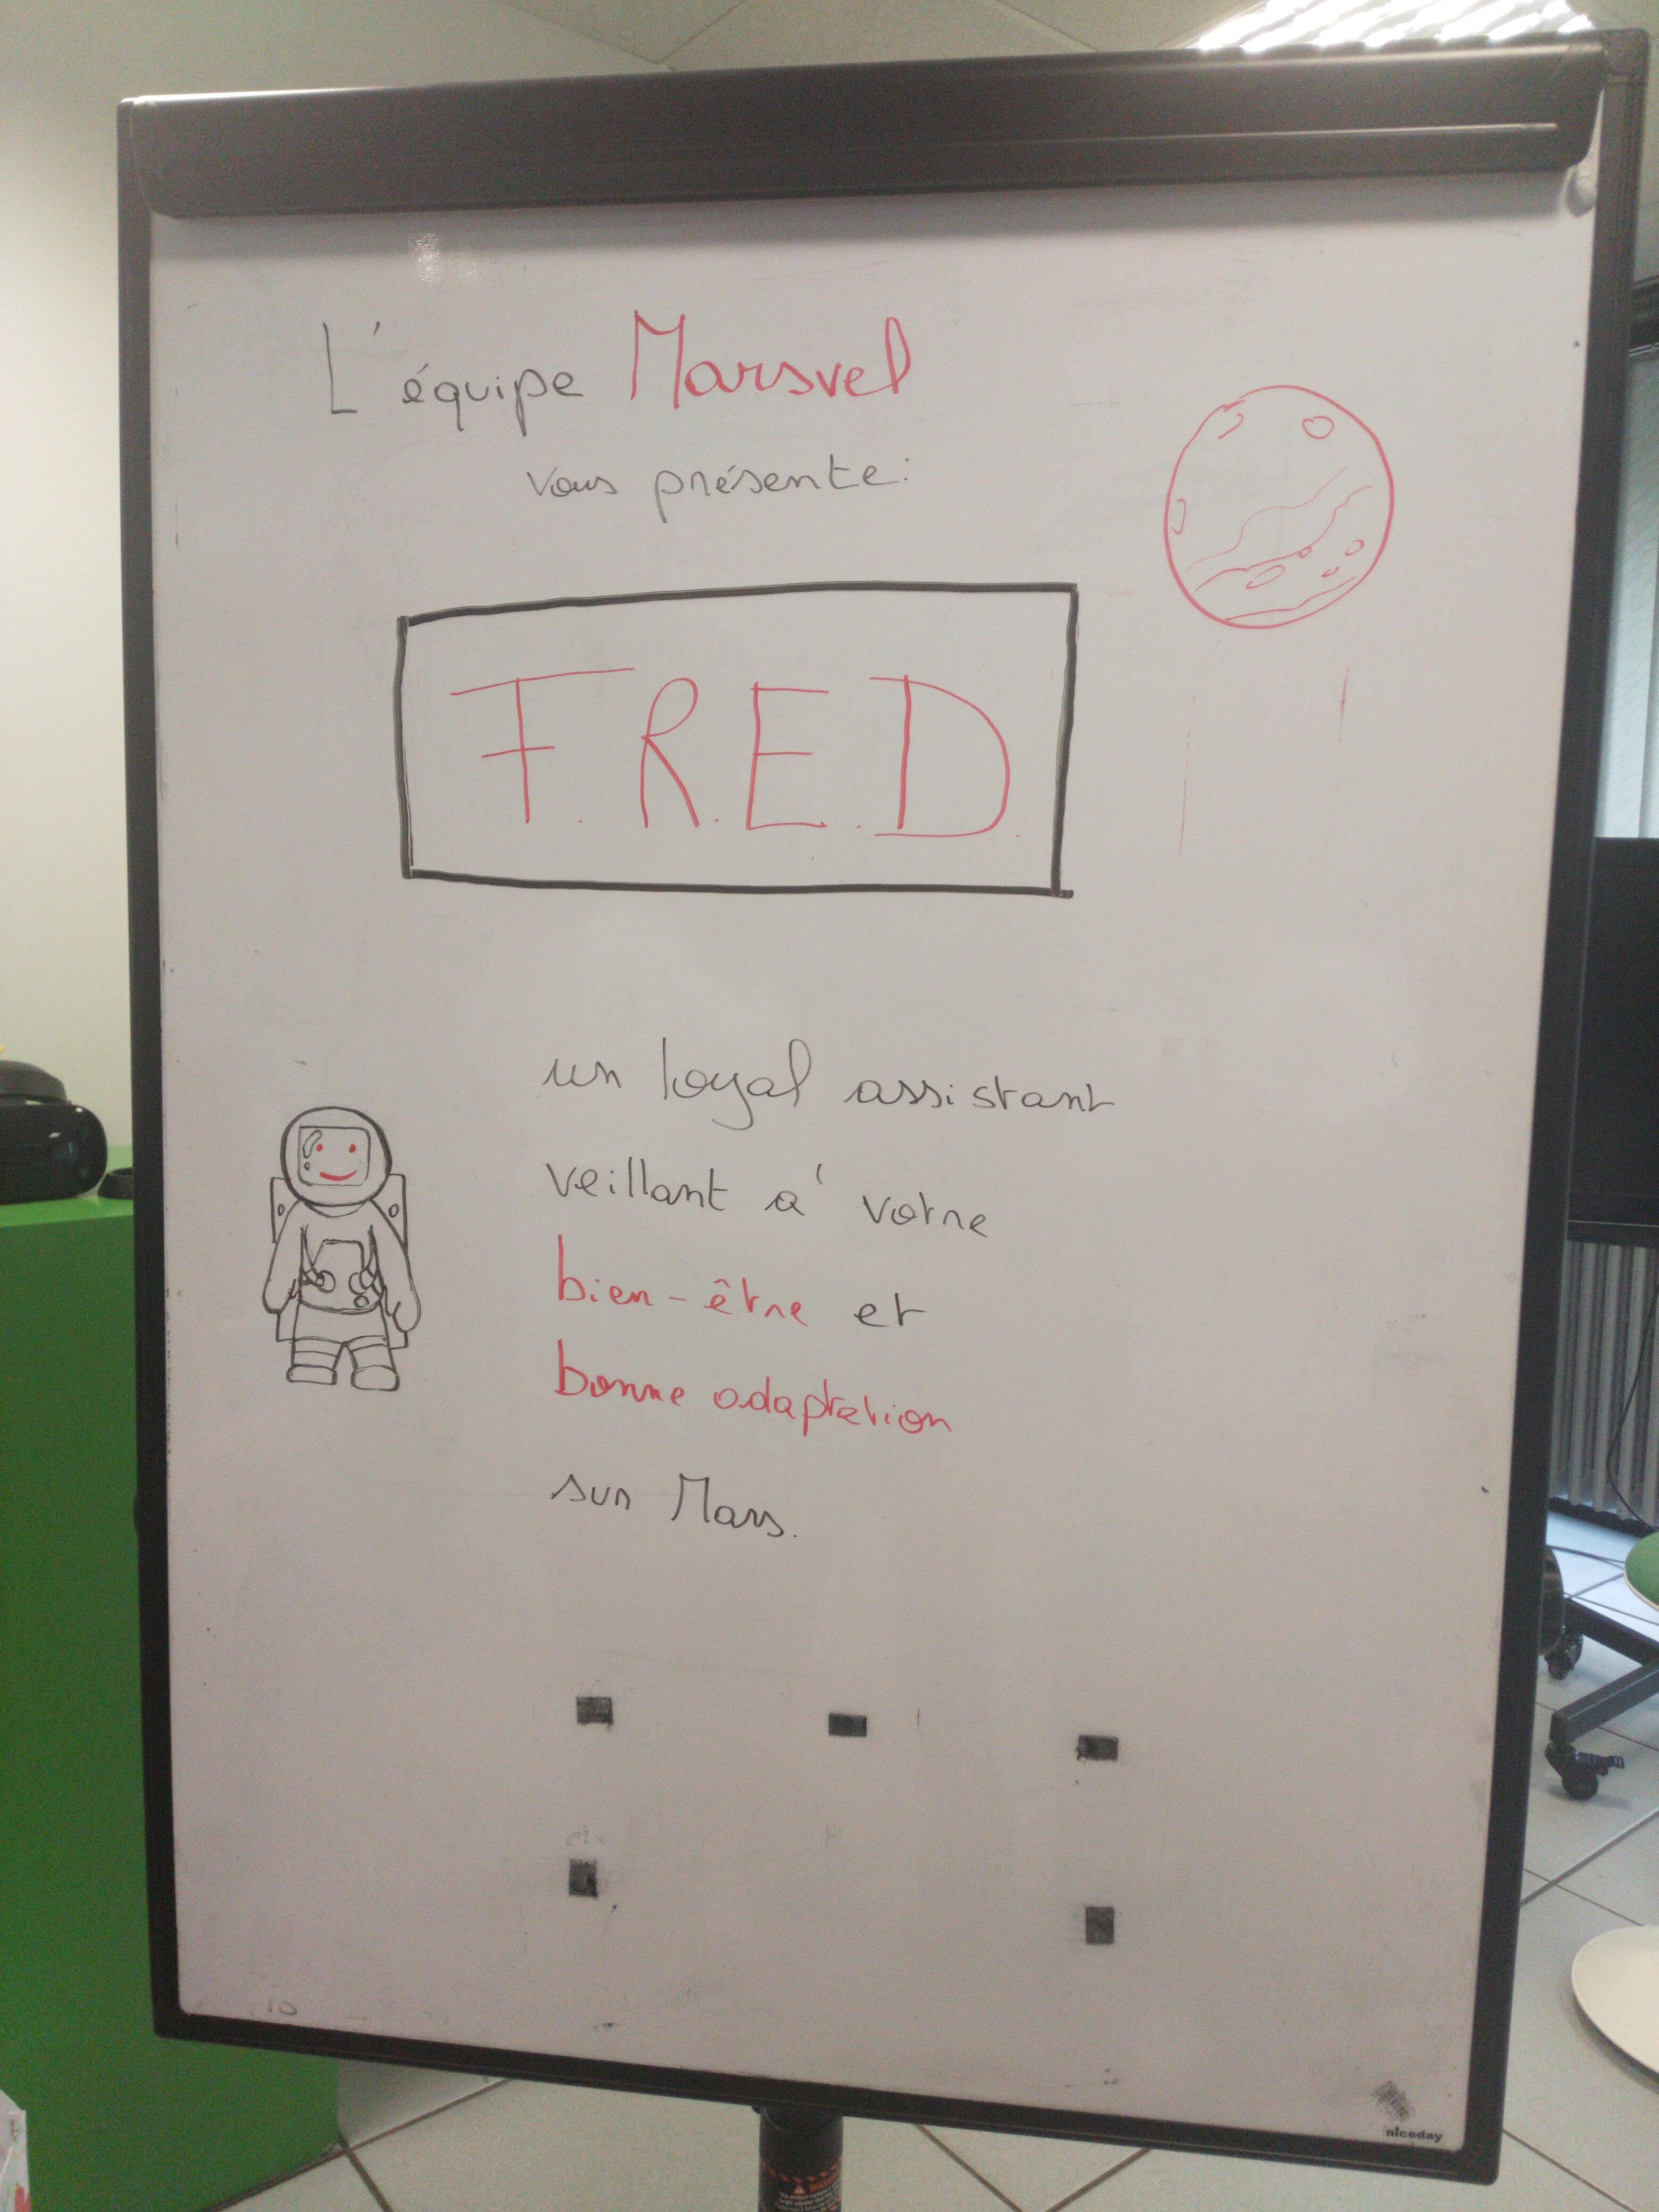 L'équipe Marsvel
vous présente:
F.R.E.D.
un loyal assistant
veillant à votre
bien-être et
bonne adaptation
sur Mars.
niceday